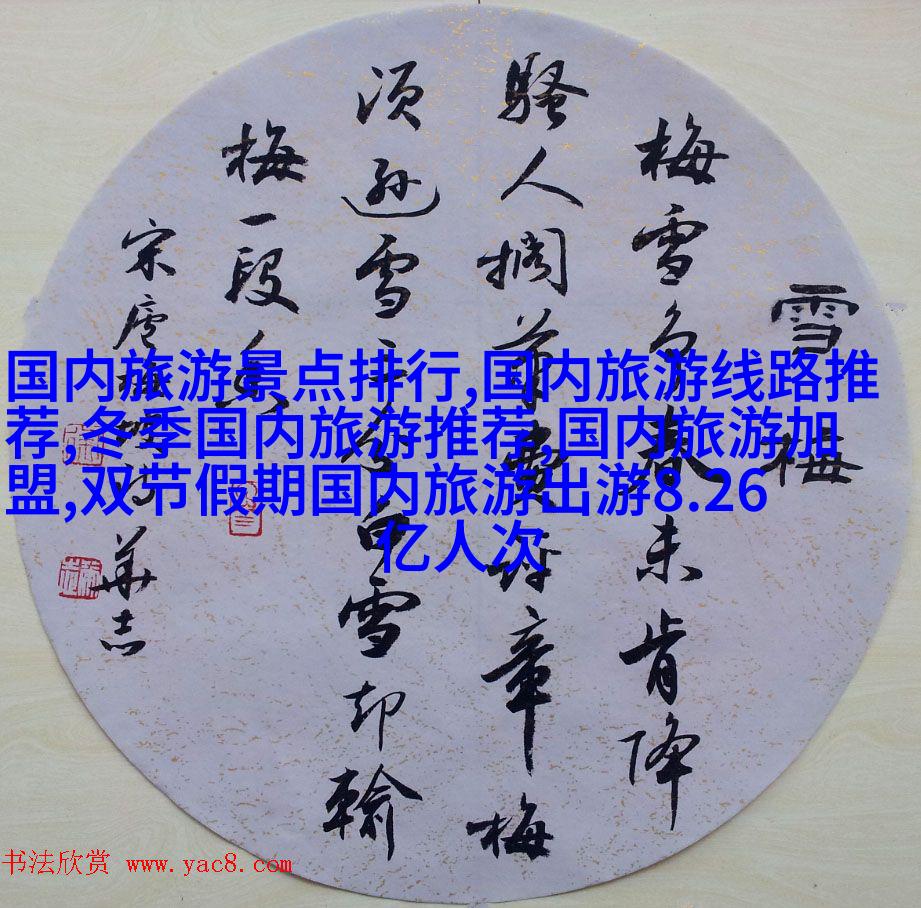 雪梅
梅雪争春未肯降
骚人搁筆费评章梅
须逊雪三分白雪却輸
梅一段香
宋卢梅坡诗 華志
国内旅游景点排行,国内旅游线路推
荐,冬季国内旅游推荐,国内旅游加
盟,双节假期国内旅游出游8.26
亿人次
书法欣赏 www.yac8.com